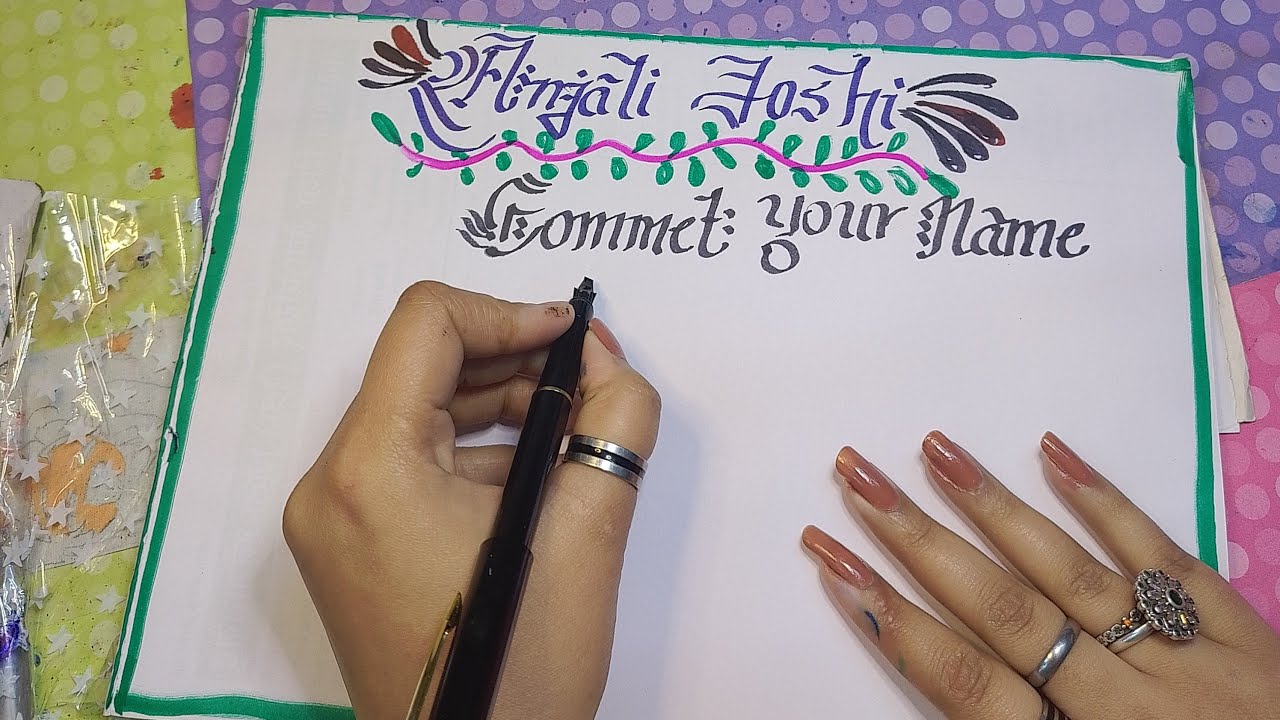 Anjali Joshi
Commet your Name